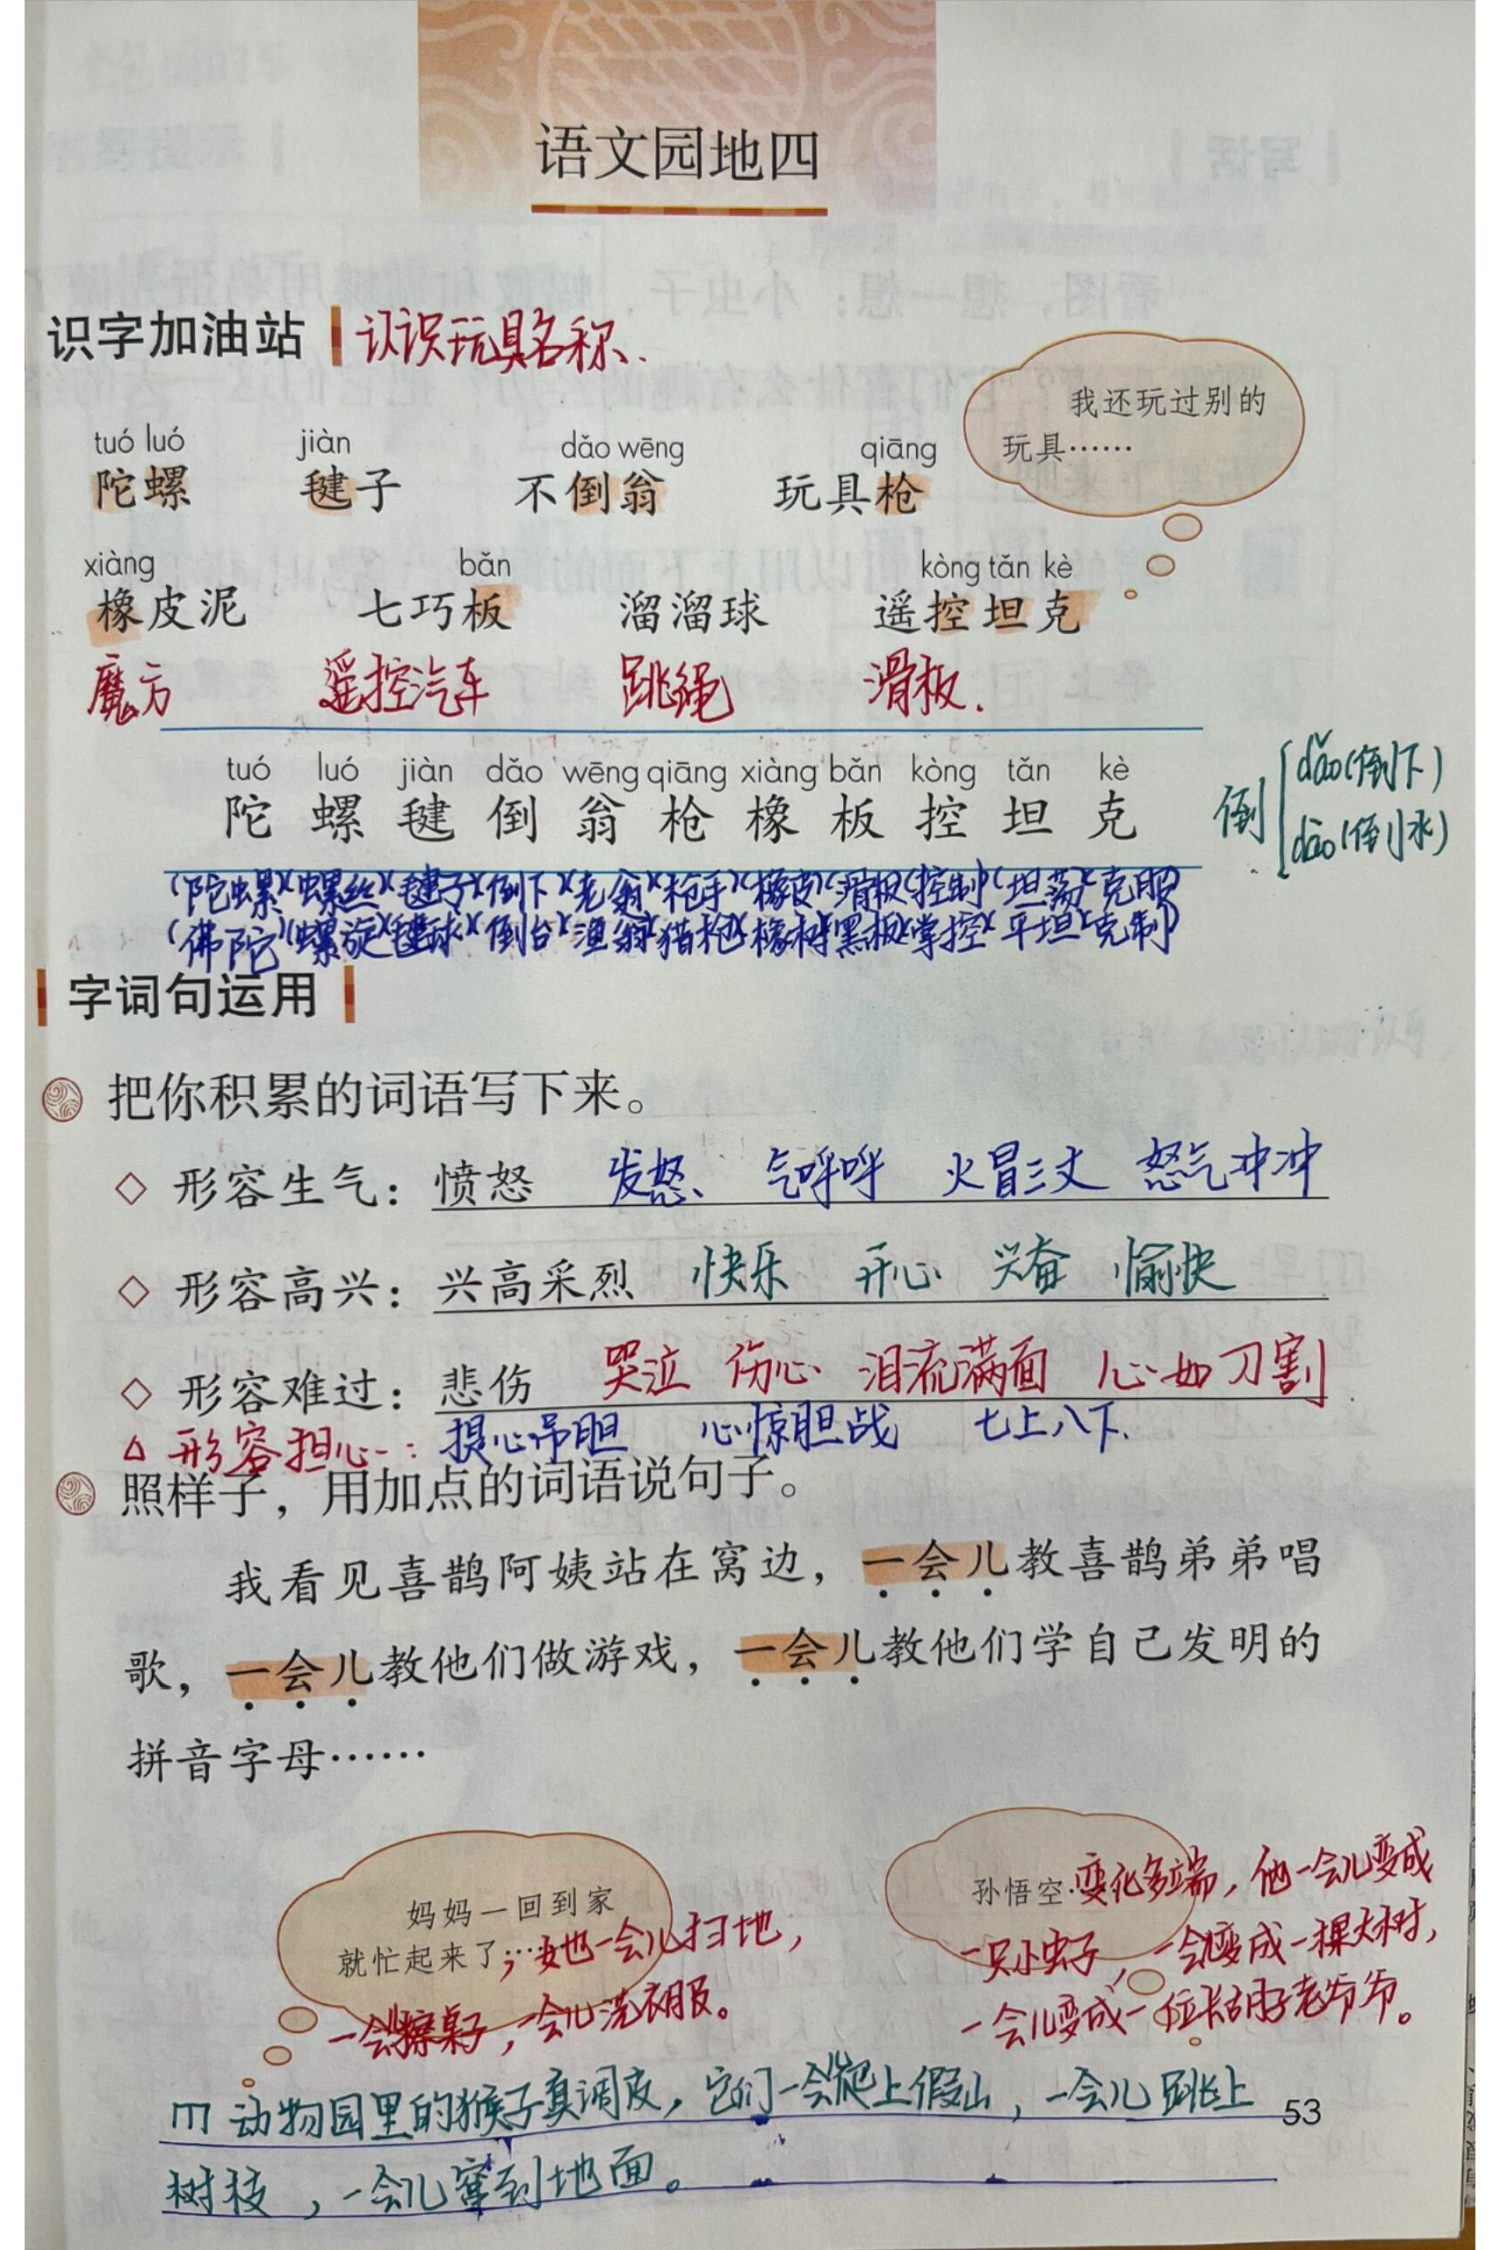 语文园地四
识字加油站 认识玩具名称.
我还玩过别的
玩具……
tuó luó jiàn dǎo wēng qiāng
陀螺 毽子 不倒翁 玩具枪
xiàng bǎn kòng tǎn kè
橡皮泥 七巧板 溜溜球 遥控坦克
魔方 遥控汽车 跳绳 滑板.
tuó luó jiàn dǎo wēng qiāng xiàng bǎn kòng tǎn kè
陀 螺 毽 倒 翁 枪 橡 板 控 坦 克
倒 dǎo(倒下)
dào(倒水)
(陀螺)(螺丝)(毽子)(倒下)(老翁)(枪手)(橡皮)(滑板)(控制)(坦荡)(克服)
(佛陀)(螺旋)(毽球)(倒台)(渔翁)(猎枪)(橡树)(黑板)(掌控)(平坦)(克制)
字词句运用
把你积累的词语写下来。
◇ 形容生气：愤怒 发怒、 气呼呼 火冒三丈 怒气冲冲
◇ 形容高兴：兴高采烈 快乐 开心 兴奋 愉快
◇ 形容难过：悲伤 哭泣 伤心 泪流满面 心如刀割
△ 形容担心: 提心吊胆 心惊胆战 七上八下.
照样子，用加点的词语说句子。
我看见喜鹊阿姨站在窝边，一会儿教喜鹊弟弟唱
歌，一会儿教他们做游戏，一会儿教他们学自己发明的
拼音字母……
妈妈一回到家
就忙起来了…，她一会儿扫地，
一会儿擦桌子，一会儿洗衣服。
孙悟空…变化多端，他一会儿变成
一只小虫子，一会儿变成一棵大树，
一会儿变成一位长胡子老爷爷。
动物园里的猴子真调皮，它们一会儿爬上假山，一会儿跳上
树枝，一会儿窜到地面。
53